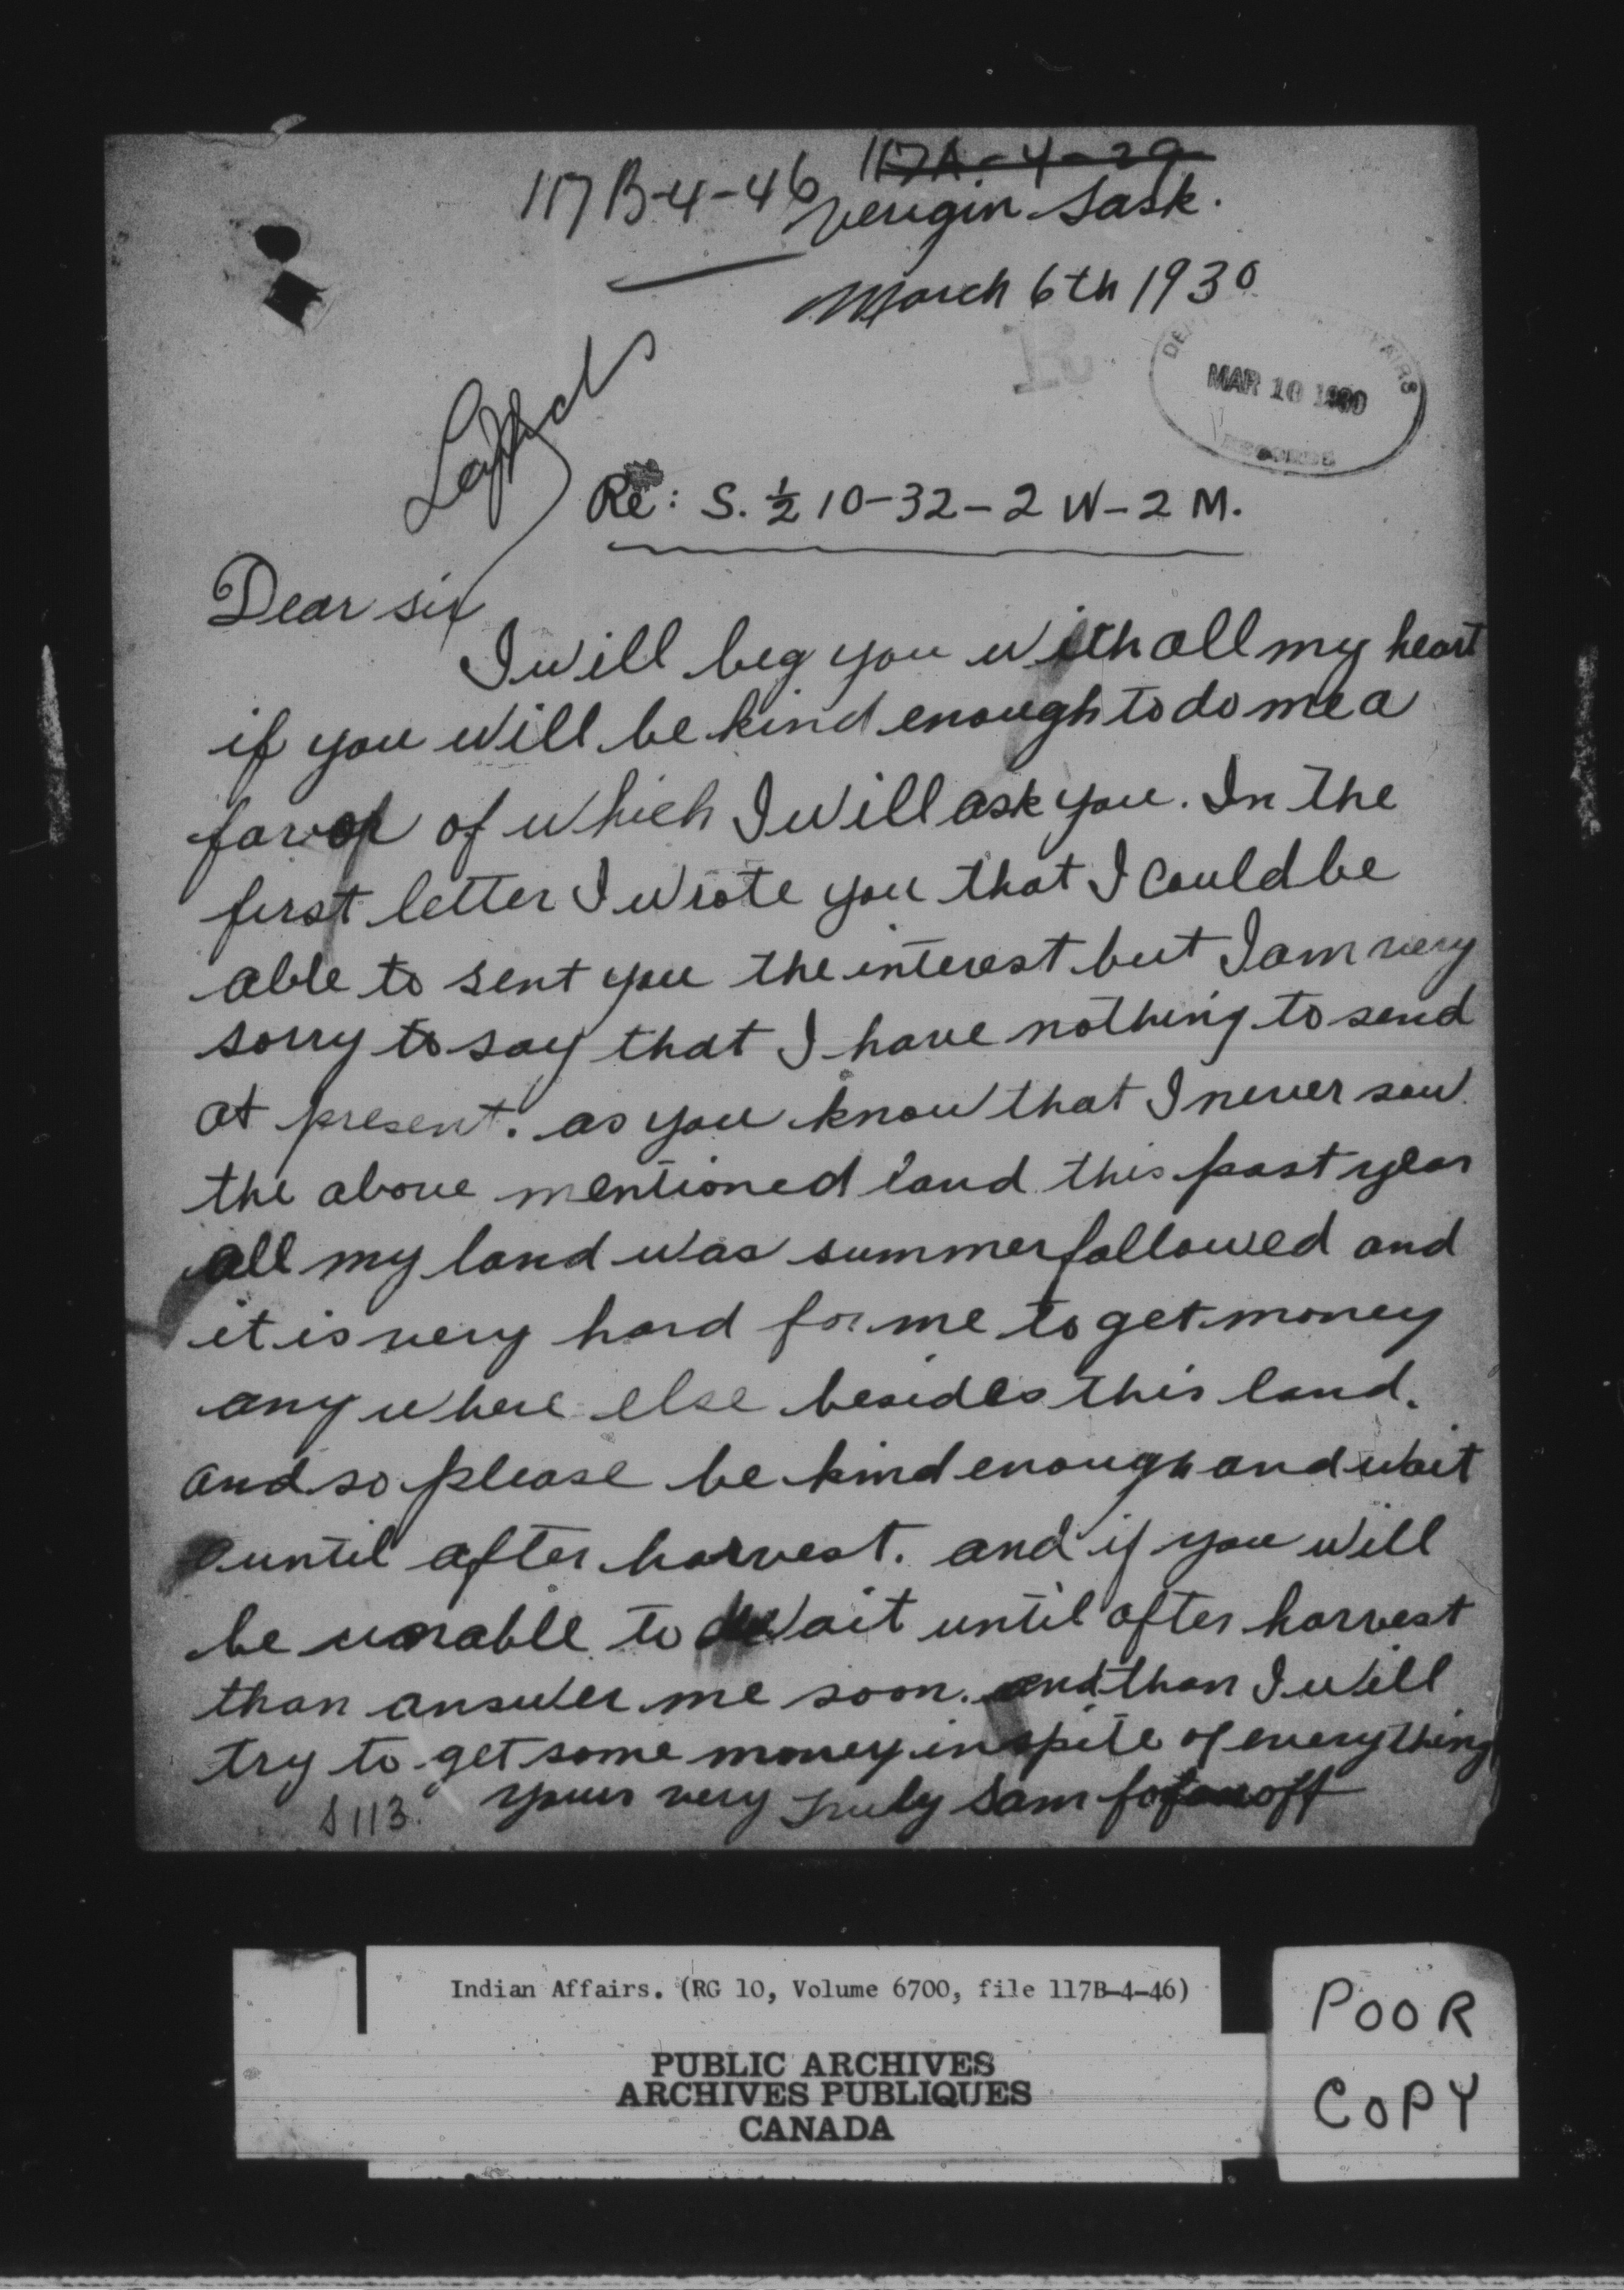 117B-4-46 117A-4-29
Verigin Sask.
March 6th 1930
MAR 10 1930
Re: S. ½ 10-32-2 W-2 M.
Dear sir
I will beg you with all my heart
if you will be kind enough to do me a
favor of which I will ask you. In the
first letter I wrote you that I could be
able to sent you the interest but I am very
sorry to say that I have nothing to send
at present. as you know that I never saw
the above mentioned land this past year
all my land was summerfallowed and
it is very hard for me to get money
any where else besides this land.
and so please be kind enough and wait
until after harvest. and if you will
be unable to wait until after harvest
than answer me soon. and than I will
try to get some money inspite of everything
yours very truly Sam fofonoff
S 113.
Indian Affairs. (RG 10, Volume 6700, file 117B-4-46)
PUBLIC ARCHIVES
ARCHIVES PUBLIQUES
CANADA
POOR
COPY